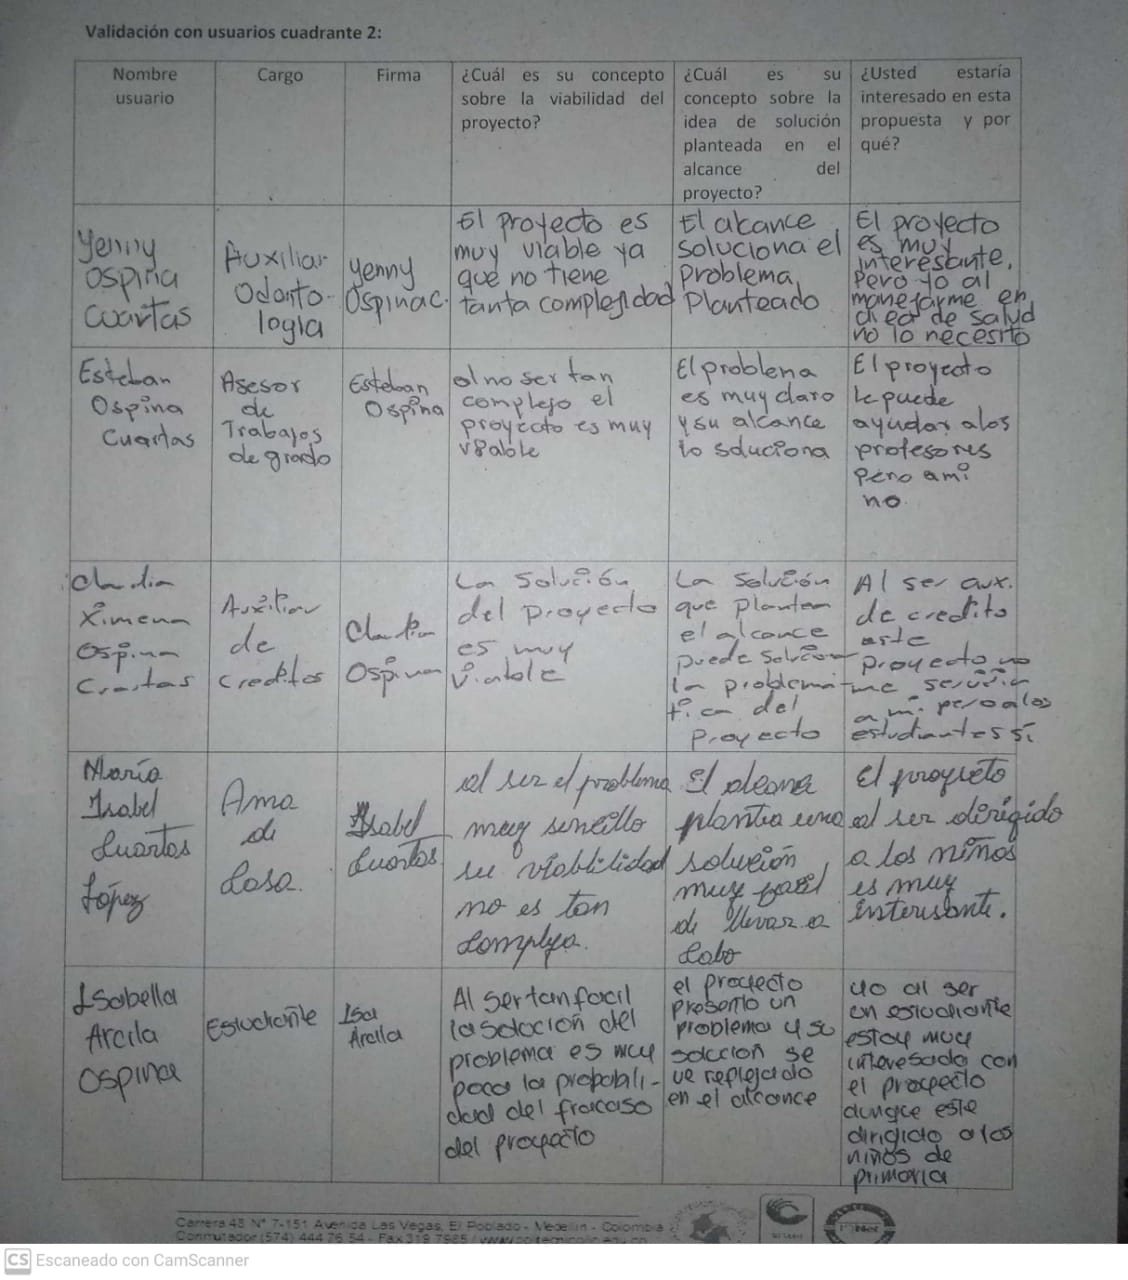 Validación con usuarios cuadrante 2:
Nombre
usuario
Cargo
Firma
¿Cuál es su concepto
sobre la viabilidad del
proyecto?
¿Cuál es su
concepto sobre la
idea de solución
planteada en el
alcance del
proyecto?
¿Usted estaría
interesado en esta
propuesta y por
qué?
Yenny
Ospina
Cuartas
Auxiliar
Odonto-
logia
Yenny
Ospina C.
El proyecto es
muy viable ya
que no tiene
tanta complejidad
El alcance
soluciona el
problema
Planteado
El proyecto
es muy
interesante,
Pero yo al
manejarme en
area de salud
no lo necesito
Esteban
Ospina
Cuartas
Asesor
de
Trabajos
de grado
Esteban
Ospina
al no ser tan
complejo el
proyecto es muy
viable
El problema
es muy claro
y su alcance
lo soluciona
El proyecto
le puede
ayudar a los
profesores
pero a mi
no.
Claudia
Ximena
Ospina
Cuartas
Auxiliar
de
creditos
Claudia
Ospina
La solución
del proyecto
es muy
viable
La solución
que plantea
el alcance
puede solucionar
la problemá-
tica del
proyecto
Al ser aux.
de credito
este
proyecto no
me serviria
a mi pero a los
estudiantes si
María
Isabel
Cuartas
López
Ama
de
Casa.
Isabel
Cuartas
al ser el problema
muy sencillo
su viabilidad
no es tan
compleja.
El alcance
plantea una
solución
muy facil
de llevar a
Cabo
El proyecto
al ser dirigido
a los niños
es muy
interesante.
Isabella
Arcila
Ospina
Estudiante
Isa
Arcila
Al ser tan facil
la solucion del
problema es muy
poca la probabili-
dad del fracaso
del proyecto
el proyecto
presento un
problema y su
solucion se
ve reflejado
en el alcance
yo al ser
un estudiante
estoy muy
interesada con
el proyecto
aunque este
dirigido a los
niños de
primaria
Carrera 48 N° 7-151 Avenida Las Vegas, El Poblado - Medellín - Colombia
Conmutador (574) 444 76 54 - Fax 319 7885 /
CS Escaneado con CamScanner